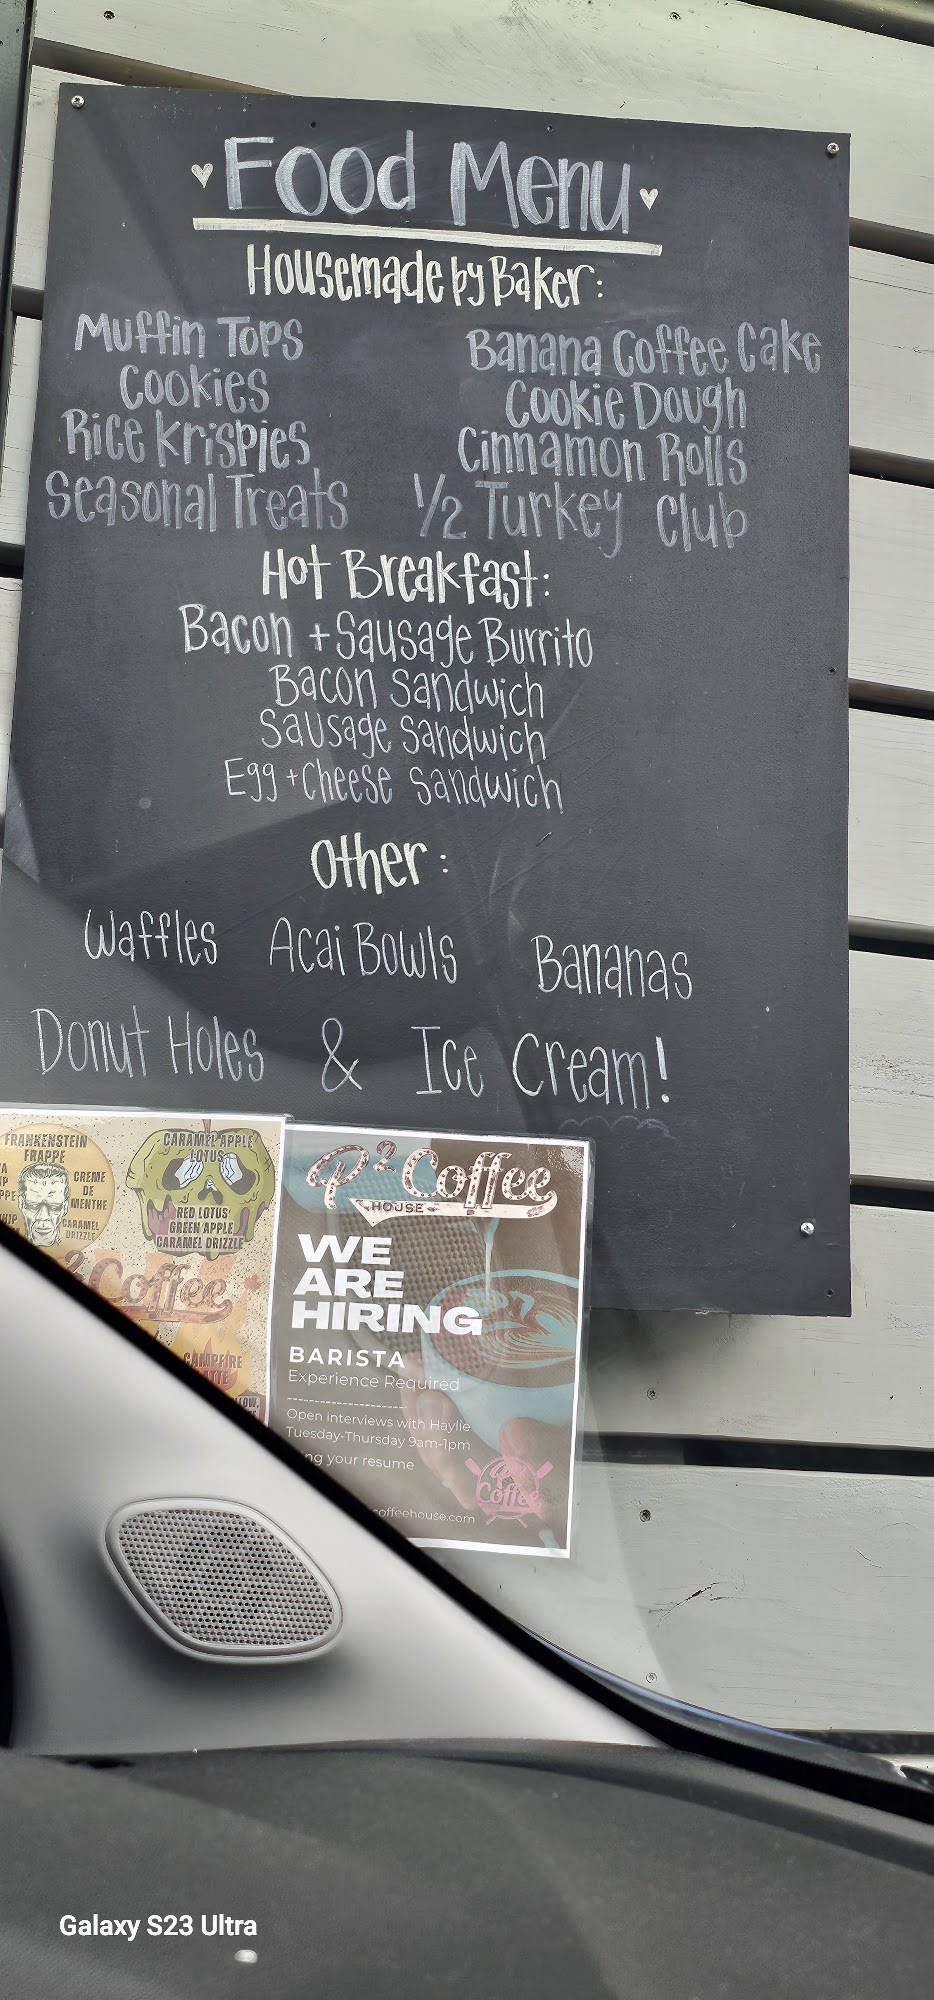 Food Menu
Housemade by Baker:
Muffin Tops
Cookies
Rice Krispies
Seasonal Treats
Banana Coffee Cake
Cookie Dough
Cinnamon Rolls
1/2 Turkey Club
Hot Breakfast:
Bacon + Sausage Burrito
Bacon Sandwich
Sausage Sandwich
Egg + Cheese Sandwich
Other:
Waffles Acai Bowls Bananas
Donut Holes & Ice Cream!
FRANKENSTEIN
FRAPPE
CREME
DE
MENTHE
CARAMEL
DRIZZLE
CARAMEL APPLE
LOTUS
RED LOTUS
GREEN APPLE
CARAMEL DRIZZLE
Coffee
CAMPFIRE
P² Coffee
HOUSE
WE
ARE
HIRING
BARISTA
Experience Required
Open interviews with Haylie
Tuesday-Thursday 9am-1pm
your resume
coffeehouse.com
Coffee
Galaxy S23 Ultra